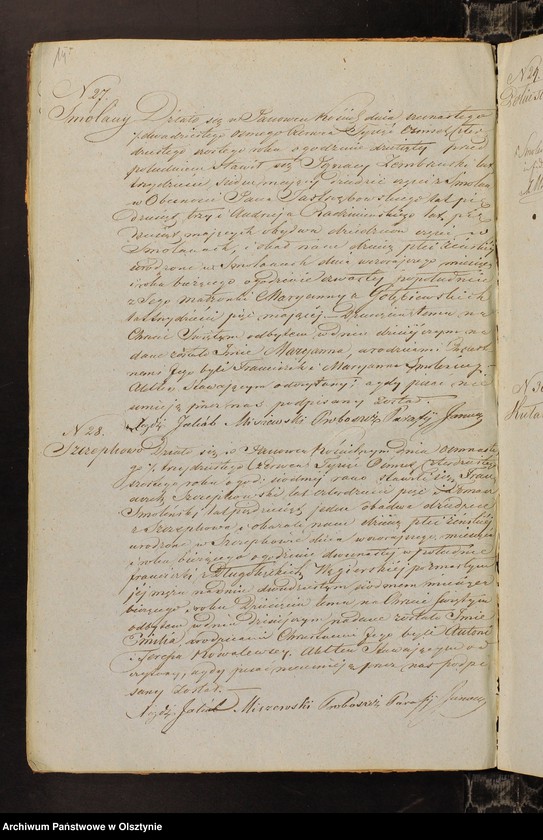 N 27.
Smolany Działo się w Janowcu Kościel: dnia szesnastego
dwudziestego ósmego Czerwca Tysiąc Ośmset czter-
dziestego szóstego roku o godzinie dziesiątej przed
południem Stawił się Ignacy Zembrzuski lat
trzydzieści siedm mający dziedzic części z Smolan
w Obecności Jana Jastrzębowskiego lat pię
dziesiąt trzy i Andrzeja Radzimińskiego lat pięć
dziesiąt mających obydwa dziedziców części w
Smolanach, i okazał nam dziecię płci żeńskiej
urodzone w Smolanach dnia wczorajszego miesiąca
i roku bieżącego o godzinie czwartej popołudniu
z Jego małżonki Maryanny z Gołębiewskich
lat trzydzieści pięć mającej. Dziecięciu temu na
Chrzcie Świętym odbytym w dniu dzisiejszym na
dane zostało Imie Maryanna, a rodzicami Chrzest
nemi Jego byli Franciszek i Maryanna
Akt ten stawającym odczytany, a gdy pisać nie
umieją przez nas podpisany został.
Xiądz Julian Miszewski Proboszcz Parafij Janow
N 28.
Szczephowo Działo się w Janowcu Kościelnym dnia
trzydziestego Czerwca Tysiąc Ośmset czterdziestego
szóstego roku o god: rano stawili się Fran
lat czterdzieści pięć i
Smoleński, lat pięćdziesiąt jeden obadwa dziedzice
z Szczephowa i okazali nam dziecię płci żeńskiej
urodzone w Szczephowie dnia wczorajszego miesiąca
i roku bieżącego o godzinie dwunastej w południe
Franciszki z Długołęckich Węgierskiej pozmarłym
jej mężu na dniu dwudziestym siódmem miesiąca
bieżącego roku Dziecięciu temu na Chrzcie Świętym
odbytym w dniu Dzisiejszym nadane zostało Imie
Emilia a rodzicami Chrzestnemi Jego byli Antoni
i Teresa Kowalewscy. Akt ten Stawającym od
czytany, a gdy pisać nieumieją przez nas podpi
sany został.
Xiądz Julian Miszewski Proboszcz Parafij Janow
N 29.
N 30
Archiwum Państwowe w Olsztynie